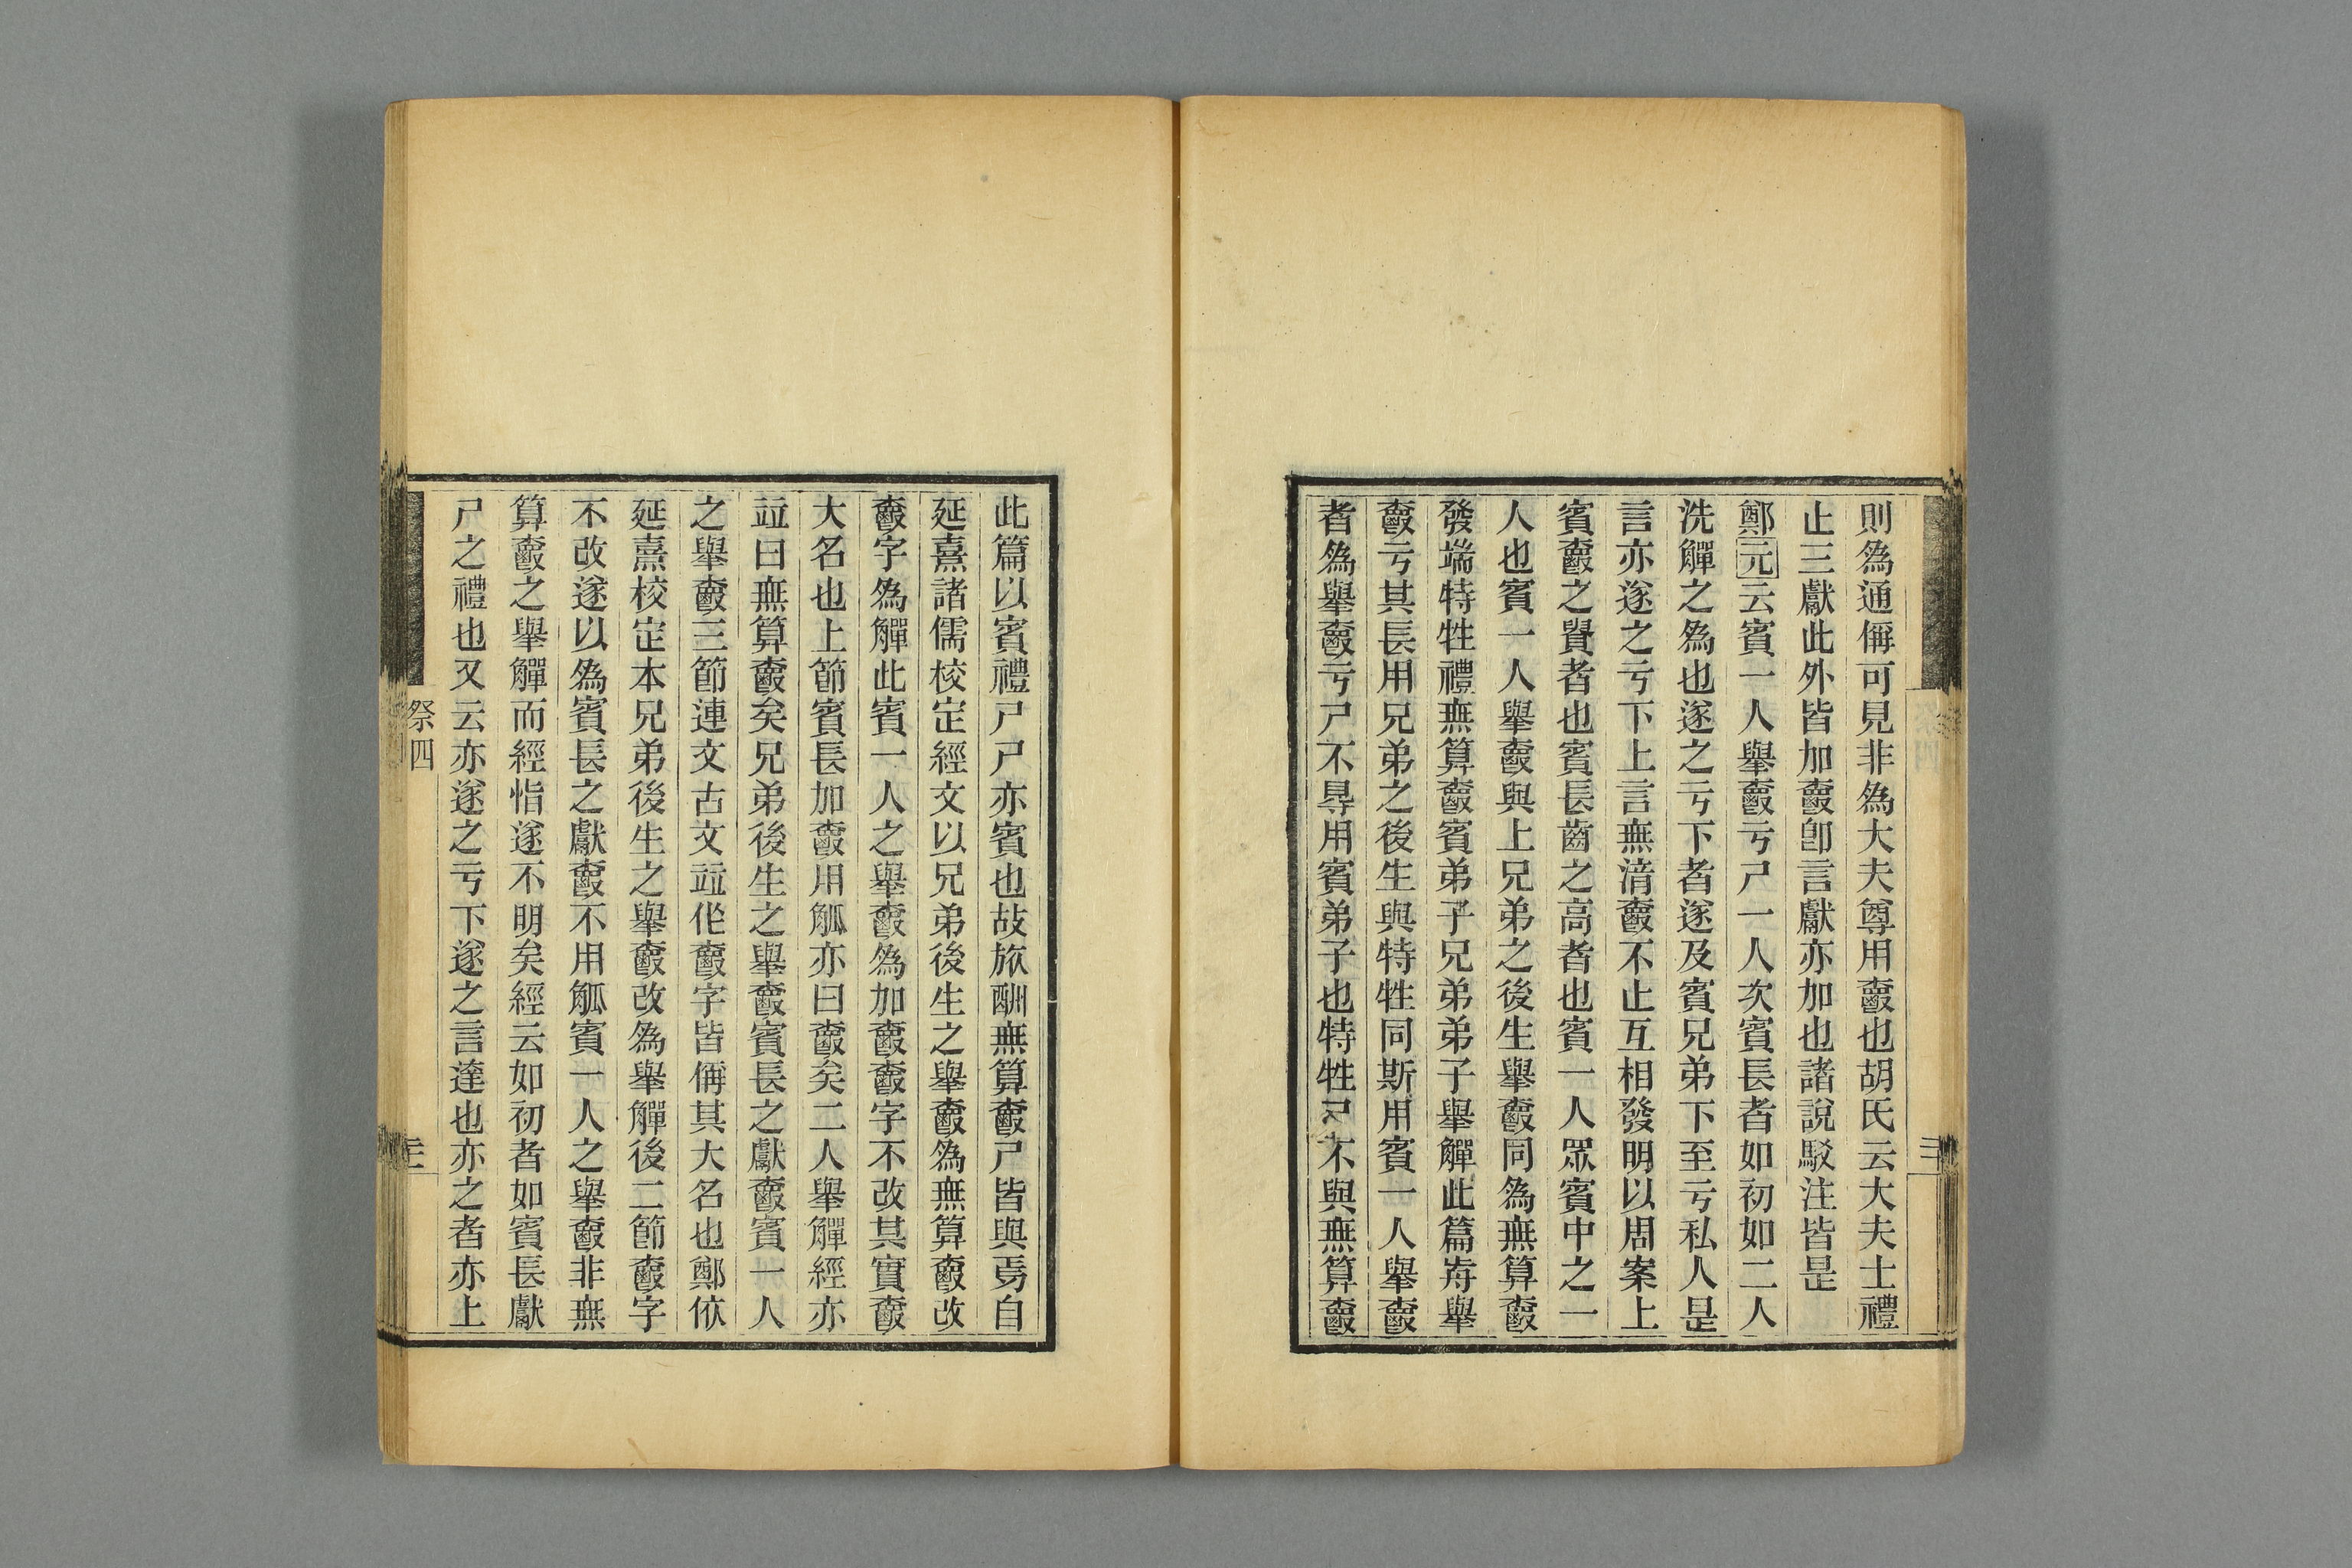 則為通偁可見非為大夫尊用𩰥也胡氏云大夫士禮
止三獻此外皆加𩰥卽言獻亦加也諸說駁注皆是
鄭元云賓一人舉𩰥亏尸一人次賓長者如初如二人
洗觶之為也遂之亏下者遂及賓兄弟下至亏私人是
言亦遂之亏下上言無湇𩰥不止互相發明以周案上
賓𩰥之賢者也賓長齒之高者也賓一人眾賓中之一
人也賓一人舉𩰥與上兄弟之後生舉𩰥同為無算𩰥
發端特牲禮無算𩰥賓弟子兄弟弟子舉觶此篇歬舉
𩰥亏其長用兄弟之後生與特牲同斯用賓一人舉𩰥
者為舉𩰥亏尸不㝵用賓弟子也特牲尸不與無算𩰥
此篇以賓禮尸尸亦賓也故旅酬無算𩰥尸皆與焉自
延熹諸儒校定經文以兄弟後生之舉𩰥為無算𩰥改
𩰥字為觶此賓一人之舉𩰥為加𩰥𩰥字不改其實𩰥
大名也上節賓長加𩰥用觚亦曰𩰥矣二人舉觶經亦
竝曰無算𩰥矣兄弟後生之舉𩰥賓長之獻𩰥賓一人
之舉𩰥三節連文古文竝作𩰥字皆偁其大名也鄭依
延熹校定本兄弟後生之舉𩰥改為舉觶後二節𩰥字
不改遂以為賓長之獻𩰥不用觚賓一人之舉𩰥非無
算𩰥之舉觶而經恉遂不明矣經云如初者如賓長獻
尸之禮也又云亦遂之亏下遂之言達也亦之者亦上
祭四
三